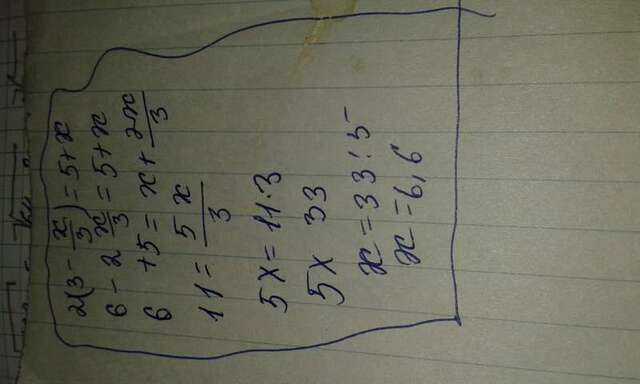 2(3 - x/3) = 5 + x
6 - 2 x/3 = 5 + x
6 + 5 = x + 2x/3
11 = 5x/3
5x = 11 · 3
5x 33
x = 33 : 5
x = 6,6